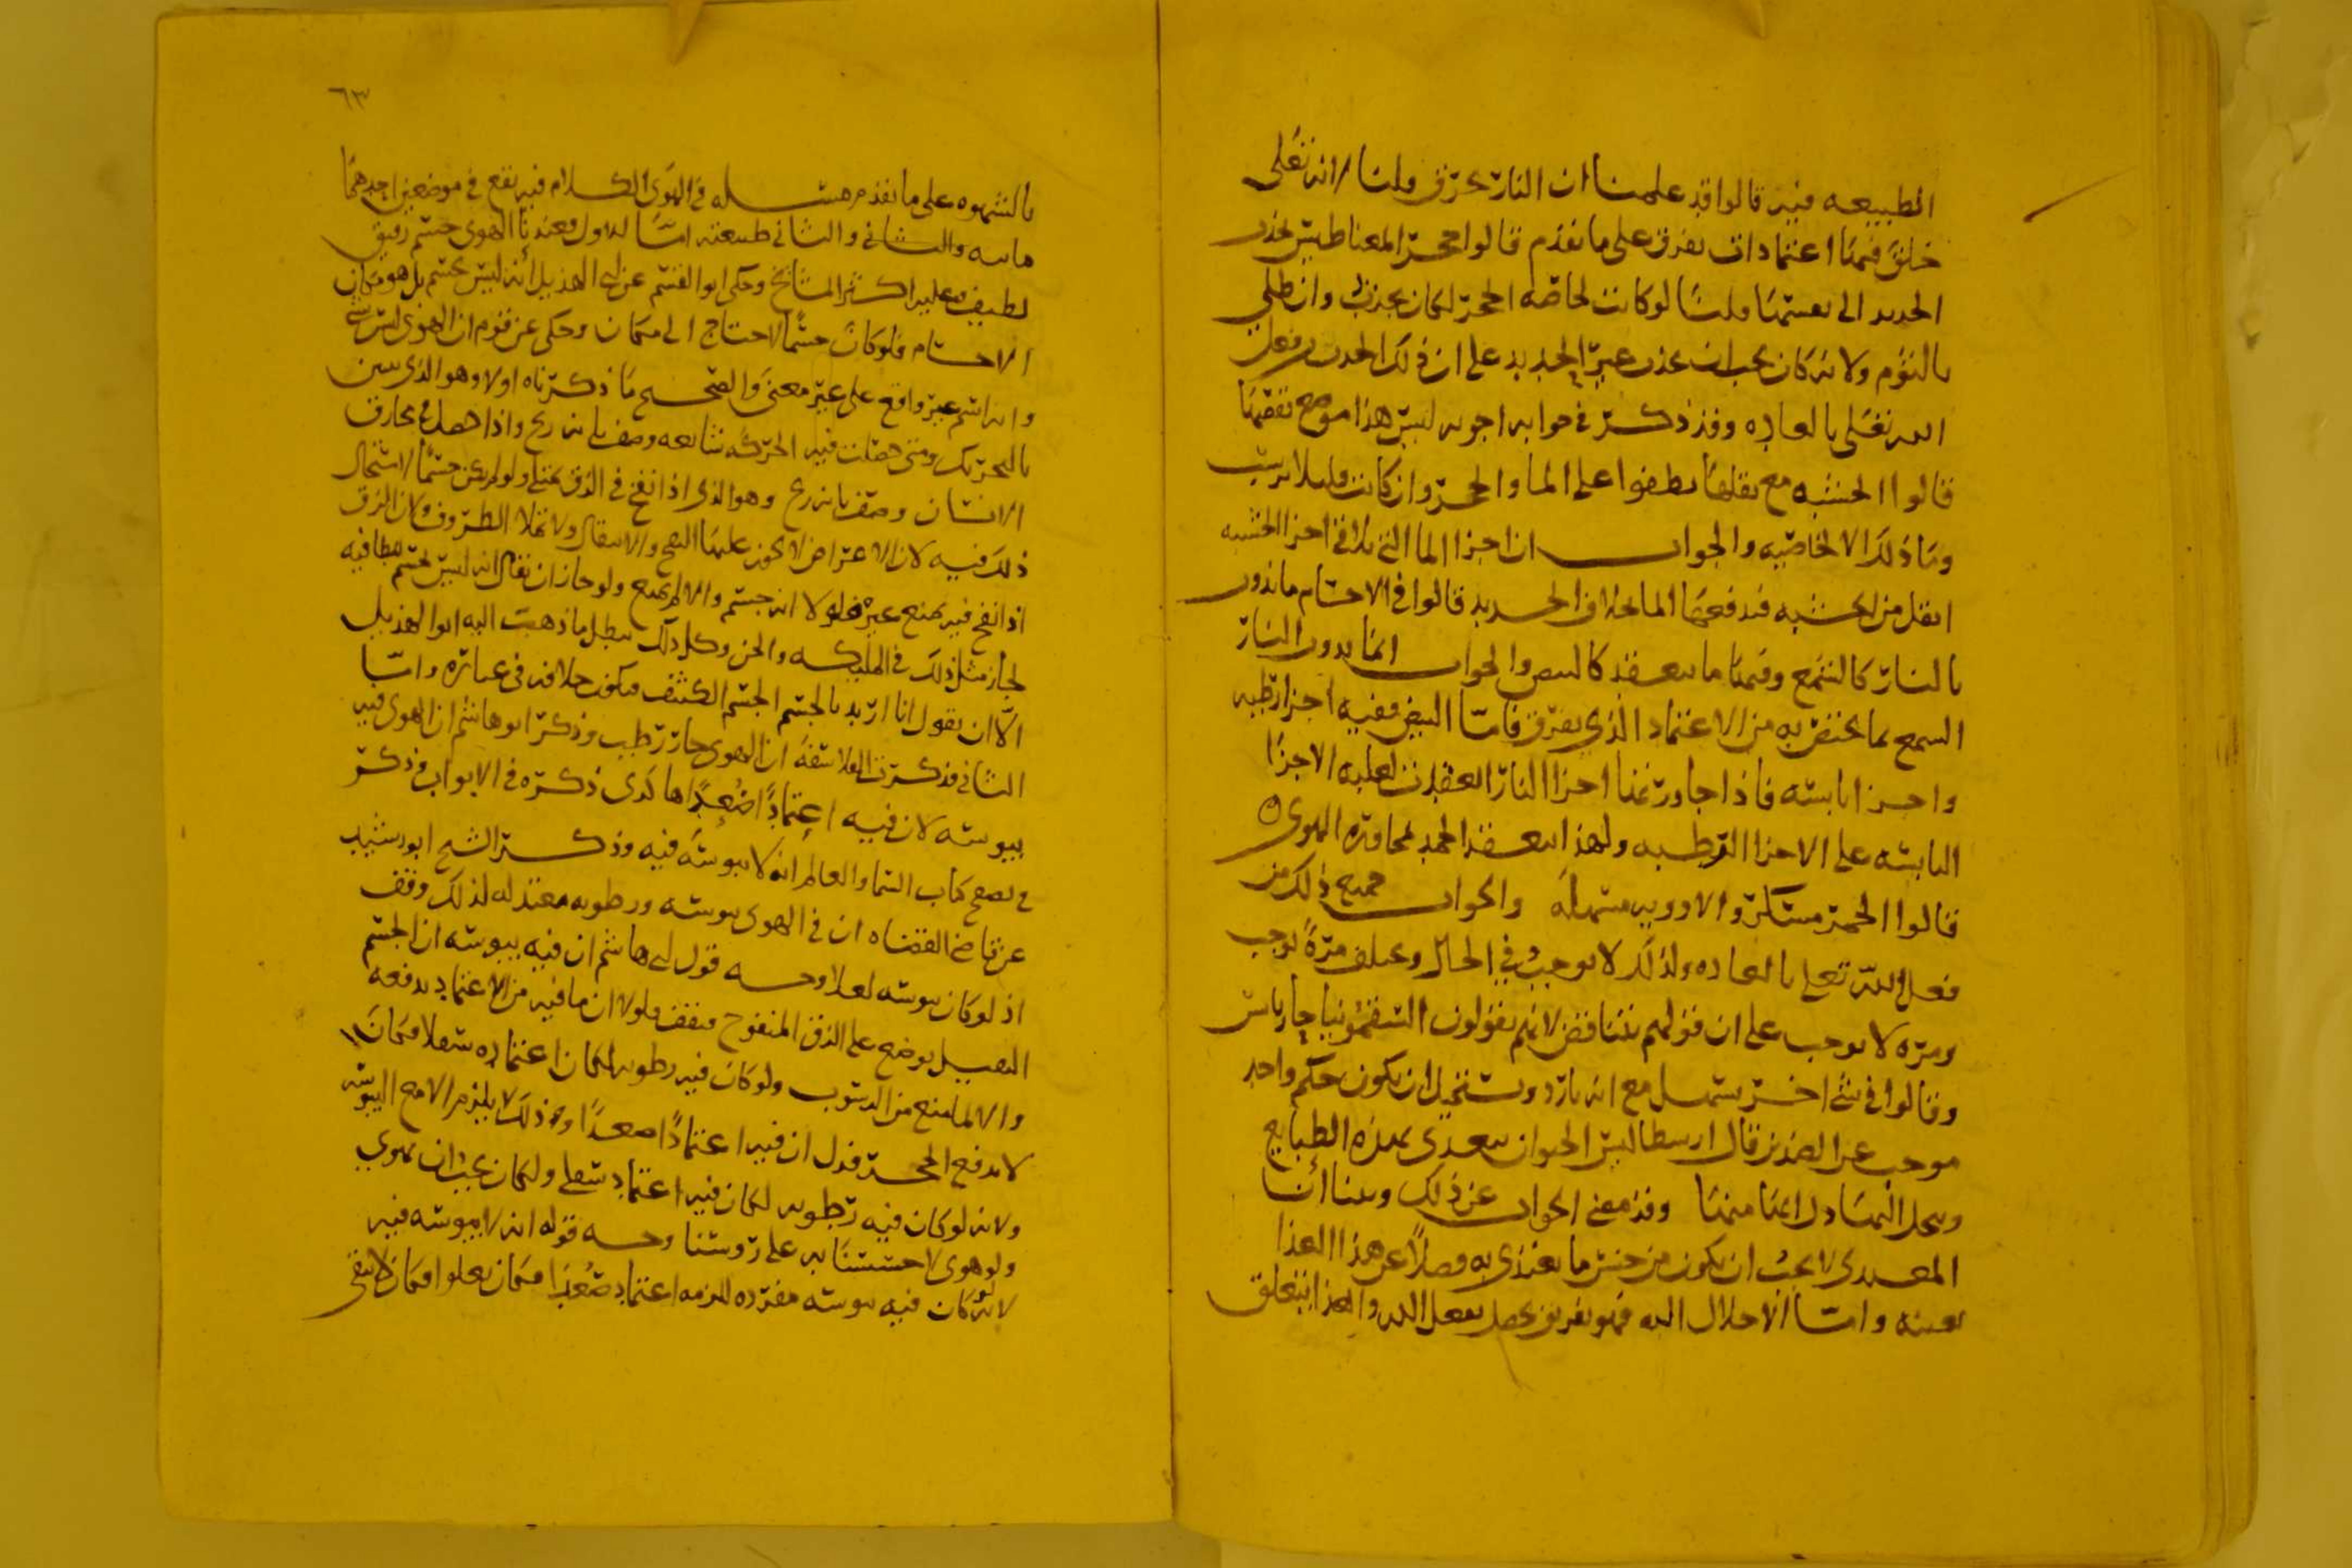 الطبيعه فيه قالوا قد علمنا ان النار تحرق قلنا لانه تعلى
خلق فيها اعتمادات تفرق على ما تقدم قالوا حجر المغناطيس يجذب
الحديد الى نفسها قلنا لو كانت لخاصه الحجر لكان يجذب وان طلي
بالثوم ولانه كان يجب ان يجذب غير الحديد على ان ذلك الجذب فعل
الله تعلى بالعاده وقد ذكر في جوابه اجوبه ليس هذا موضع تقصيها
قالوا الخشبه مع ثقلها تطفوا على الما والحجر وان كانت قليلا ترسب
وما ذلك الا لخاصيه والجواب ان اجزا الما التي تلاقي اجزا الخشبه
اثقل من الخشبه فتدفعها الما بخلاف الحديد قالوا في الاجسام ما يذوب
بالنار كالشمع وفيها ما ينعقد كالبيض والجواب انما يذوب النار
الشمع بما يختص به من الاعتماد الذي يفرق فاما البيض ففيه اجزا رطبه
واجزا يابسه فاذا جاورتها اجزا النار انعقدت لغلبه الاجزا
اليابسه على الاجزا الرطبه ولهذا ينعقد الجمد لمجاوره الهوى ٥
قالوا الخمر مسكر والادويه مسهله والجواب جميع ذلك من
فعل الله تعلى بالعاده ولذلك لا يوجب في الحال ويختلف مرة يوجب
ومره لا يوجب على ان قولهم يتناقض لانهم يقولون السقمونيا حار يابس
وقالوا في شي اخر يسهل مع انه بارد ويستحيل ان يكون حكم واحد
موجب عن الضدين قال ارسطاليس الحيوان يتغذى بهذه الطبايع
وينحل اليها دل انها منها وقد مضى الجواب عن ذلك وبينا ان
المغتذي لا يجب ان يكون من جنس ما يغتذي به فضلا عن هذا الغذا
بعينه واما الانحلال اليه فهو تفريق يحصل بفعل الله والغذا يتعلق
٦٣
بالشهوه على ما تقدم مسله في الهوى الكلام فيه يقع في موضعين احدهما
ماييته والثاني والثاني طبيعته اما الاول فعندنا الهوى جسم رقيق
لطيف وعليه اكثر المشايخ وحكى ابو القسم عن ابي الهذيل أنه ليس بجسم بل هو مكان
الاجسام فلو كان جسما لاحتاج الى مكان وحكى عن قوم ان الهوى ليس بشي
وانه اسم غير واقع على غير معنى والصحيح ما ذكرناه اولا وهو الذي يتبين
بالتحريك ومتى حصلت فيه الحركه متتابعه وصف بانه ريح واذا حصل في مخارق
الانسان وصف بانه روح وهو الذي اذا نفخ في الزق يمتلي ولو لم يكن جسما لاستحال
ذلك فيه لان الاعراض لا يجوز عليها النفخ والانتقال ولا تملا الظروف ولان الزق
اذا نفخ فيه يمنع غيره فلولا انه جسم والا لم يمنع ولو جاز ان يقال انه ليس بجسم مطافيه
لجاز مثل ذلك في الملايكه والجن وكل ذلك يبطل ما ذهب اليه ابو الهذيل
الا ان يقول انا اريد بالجسم الجسم الكثيف فيكون خلافه في عباره واما
الثاني فذكرت الفلاسفه ان الهوى حار رطب وذكر ابو هاشم ان الهوى فيه
يبوسه لان فيه اعتمادا صعدا هكذى ذكره في الابواب وذكر
في نصفح كتاب السما والعالم انه لا يبوسه فيه وذكر الشيخ ابو رشيد
عن قاضي القضاه ان في الهوى يبوسه ورطوبه معتدله لذلك وقف
اذ لو كان يبوسه لعلا وجه قول ابي هاشم ان فيه يبوسه ان الجسم
الثقيل يوضع على الزق المنفوخ فيقف فلولا ان ما فيه من الاعتماد يدفعه
والا لما منع من الرسوب ولو كان فيه رطوبه لكان اعتماده سفلا فكان
لا يدفع الحجر فدل ان فيه اعتمادا صعدا وذلك لا يلزم الا مع اليبوسه
ولانه لو كان فيه رطوبه لكان فيه اعتماد سفلي ولكان يجب ان يهوي
ولو هوى لاحسسنا به على روسنا وجه قوله انه لا يبوسه فيه
لانه لو كان فيه يبوسه مفرده للزمه اعتماد صعدا فكان يعلوا فكان لا يبقى